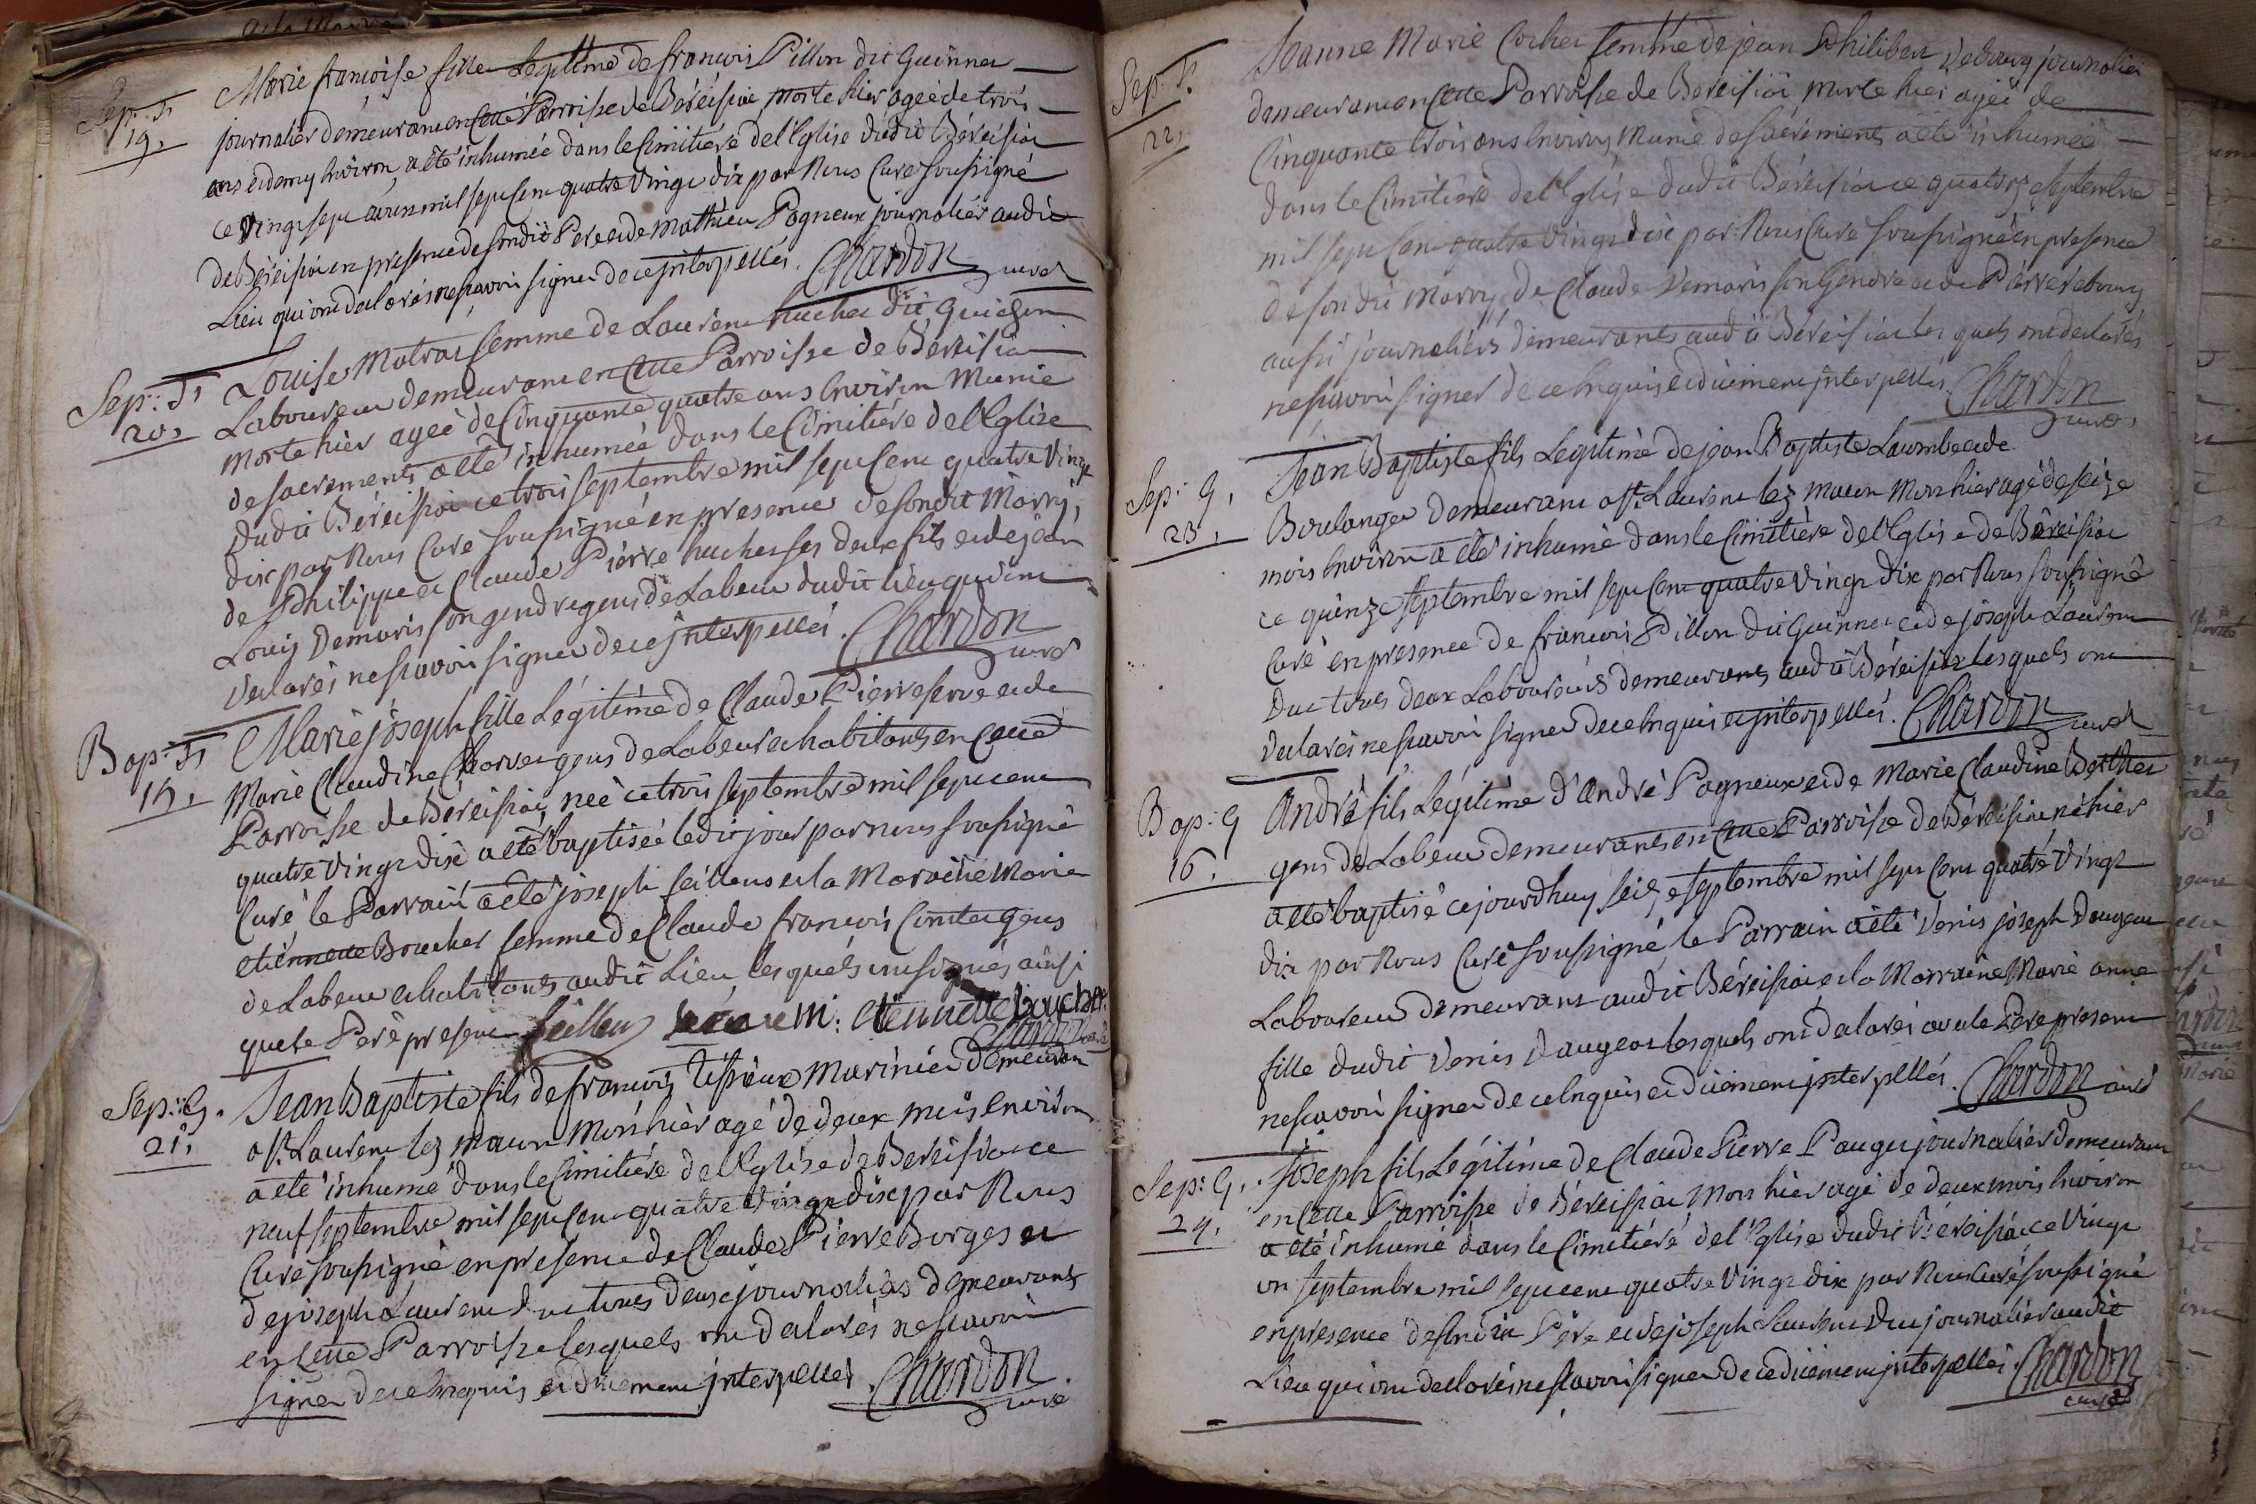 Sep: f
19.
Marie francoise fille Legitime de francois Pillon dit Guinnet
journalier demeurant en cette Parroisse de Béréisiat morte hier agée de trois
ans et demy Environ, a été inhumée dans le Cimitiére de l'Eglise dudit Béréisiat
ce vingt sept aoust mil sept cent quatre vingt dix par Nous Curé soussigné
en presence de sondit Pere et de Mathieu Pagneux journalier audit
Lieu qui ont declarés ne sçavoir signer de ce interpellés. Chardon
curé
Sep: f
20.
Louise Matras femme de Laurent huchet dit Guichon
Laboureur demeurant en cette Parroisse de Béréisiat
morte hier agée de Cinquante quatre ans Environ Munie
de sacrements a été inhumée dans le Cimitiére de l'Eglise
dudit Béréisiat ce trois septembre mil sept Cent quatre vingt
dix par Nous Curé soussigné en presence de sondit Marry,
de Philippe et Claude Pierre huchet ses deux fils et de jean
Louis Demaris son gendre gens de Labeur dudit lieu qui ont
declarés ne sçavoir signer de ce interpellés. Chardon
curé
Bap: f
15.
Marie joseph fille Légitime de Claude Pierre servé et de
Marie Claudine Charvet gens de Labeur et habitants en Cette
Parroisse de Béréisiat, née ce trois septembre mil sept cent
quatre vingt dix a été baptisée ledit jour par nous soussigné
Curé, le Parrain a été joseph feillens et la Marraine Marie
etiennette Boucher femme de Claude francois Cointet gens
de Labeur et habitants audit Lieu, lesquels ont signés ainsi
que le Pere present feillens m: etiennette boucher
Chardon curé
Sep: G.
21.
Jean Baptiste fils de francois Tissieux Marinier demeurant
a St. Laurent lez macon Mort hier agé de deux mois environ
a été inhumé dans le Cimitiére de l'Eglise de Béréisiat ce
neuf septembre mil sept cent quatre vingt dix par Nous
Curé soussigné en presence de Claude Pierre Borges et
de joseph Laurent Ductoues deux journaliers demeurants
en cette Parroisse lesquels ont declarés ne sçavoir
signer de ce Enquis et duement interpellés. Chardon
curé
Sep: f
22.
Jeanne Marie Cochet femme de jean Philibert Debourg journalier
demeurant en cette Parroisse de Béréisiat morte hier agée de
Cinquante trois ans Environ, Munie de sacrements a été inhumée
dans le Cimitiére de l'Eglise dudit Béréisiat ce quatorze septembre
mil sept Cent quatre vingt dix par Nous Curé soussigné en presence
de son dit Marry, de Claude Demaris son Gendre et de Pierre Debourg
aussi journaliers demeurants audit Béréisiat les quels ont declarés
ne sçavoir signer de ce Enquis et duement interpellés. Chardon
curé
Sep: G.
23.
Jean Baptiste fils Legitime de jean Baptiste Lacombe et de
Boulanger demeurant a St. Laurent lez macon Mort hier agé de seize
mois Environ a été inhumé dans le Cimitiére de l'Eglise de Béréisiat
ce quinze septembre mil sept cent quatre vingt dix par Nous soussigné
Curé en presence de francois Pillon dit Guinnet et de joseph Laurent
Ductoues deux Laboureurs demeurants audit Béréisiat lesquels ont
declarés ne sçavoir signer de ce Enquis et interpellés. Chardon
curé
Bap: G
16.
André fils Légitime d'andré Pagneux et de Marie Claudine Berthet
gens de Labeur demeurants en cette Parroisse de Béréisiat né hier
a été baptisé ce jourd'huy seize septembre mil sept Cent quatre vingt
dix par Nous Curé soussigné, le Parrain a été Denis joseph Daugeat
Laboureur demeurant audit Béréisiat et la Marraine Marie anne
fille dudit Denis Daugeat lesquels ont declarés avec le Pere present
ne sçavoir signer de ce Enquis et duement interpellés. Chardon curé
Sep: G.
24.
Joseph fils Légitime de Claude Pierre Pauget journalier demeurant
en cette Parroisse de Béréisiat Mort hier agé de deux mois Environ
a été inhumé dans le Cimitiére de l'Eglise dudit Béréisiat ce vingt
un septembre mil sept cent quatre vingt dix par Nous Curé soussigné
en presence de sondit Pére et de joseph Laurent Duc journalier audit
Lieu qui ont declarés ne sçavoir signer de ce duement interpellés. Chardon
curé